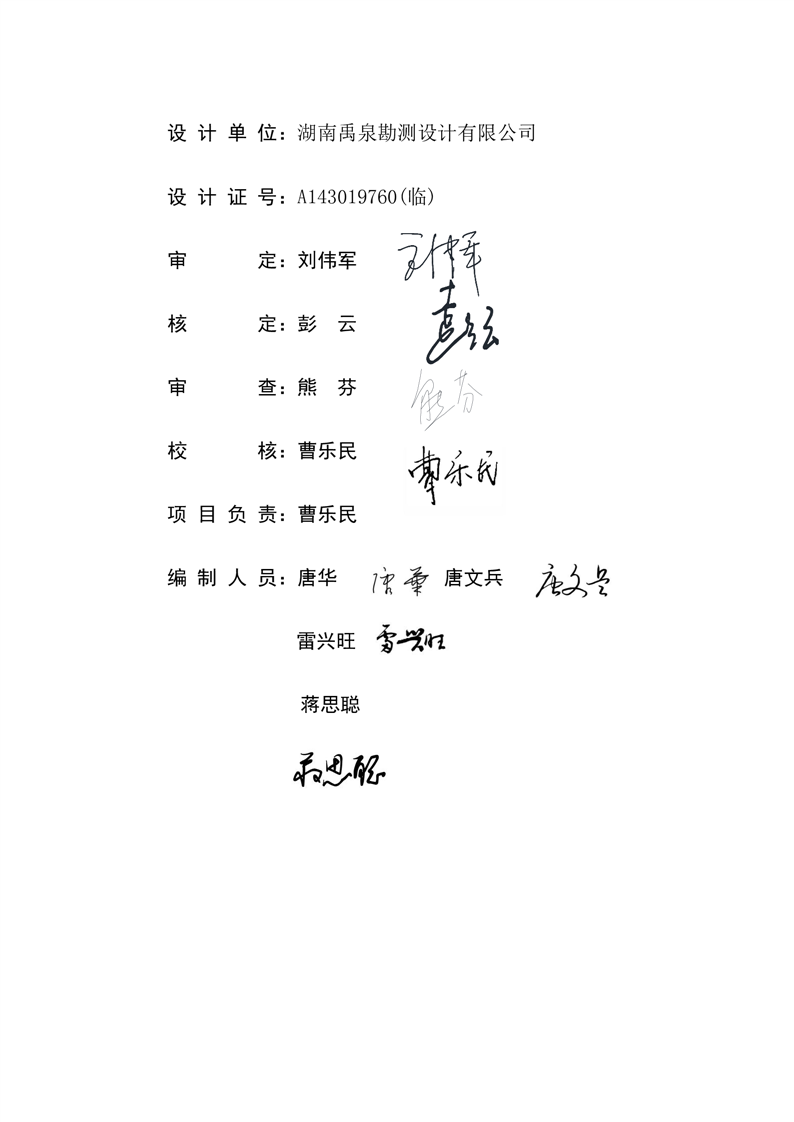 设计单位：湖南禹泉勘测设计有限公司
设计证号：A143019760(临)
审定：刘伟军 刘伟军
核定：彭云 彭云
审查：熊芬 熊芬
校核：曹乐民 曹乐民
项目负责：曹乐民
编制人员：唐华 唐华 唐文兵 唐文兵
雷兴旺 雷兴旺
蒋思聪
蒋思聪